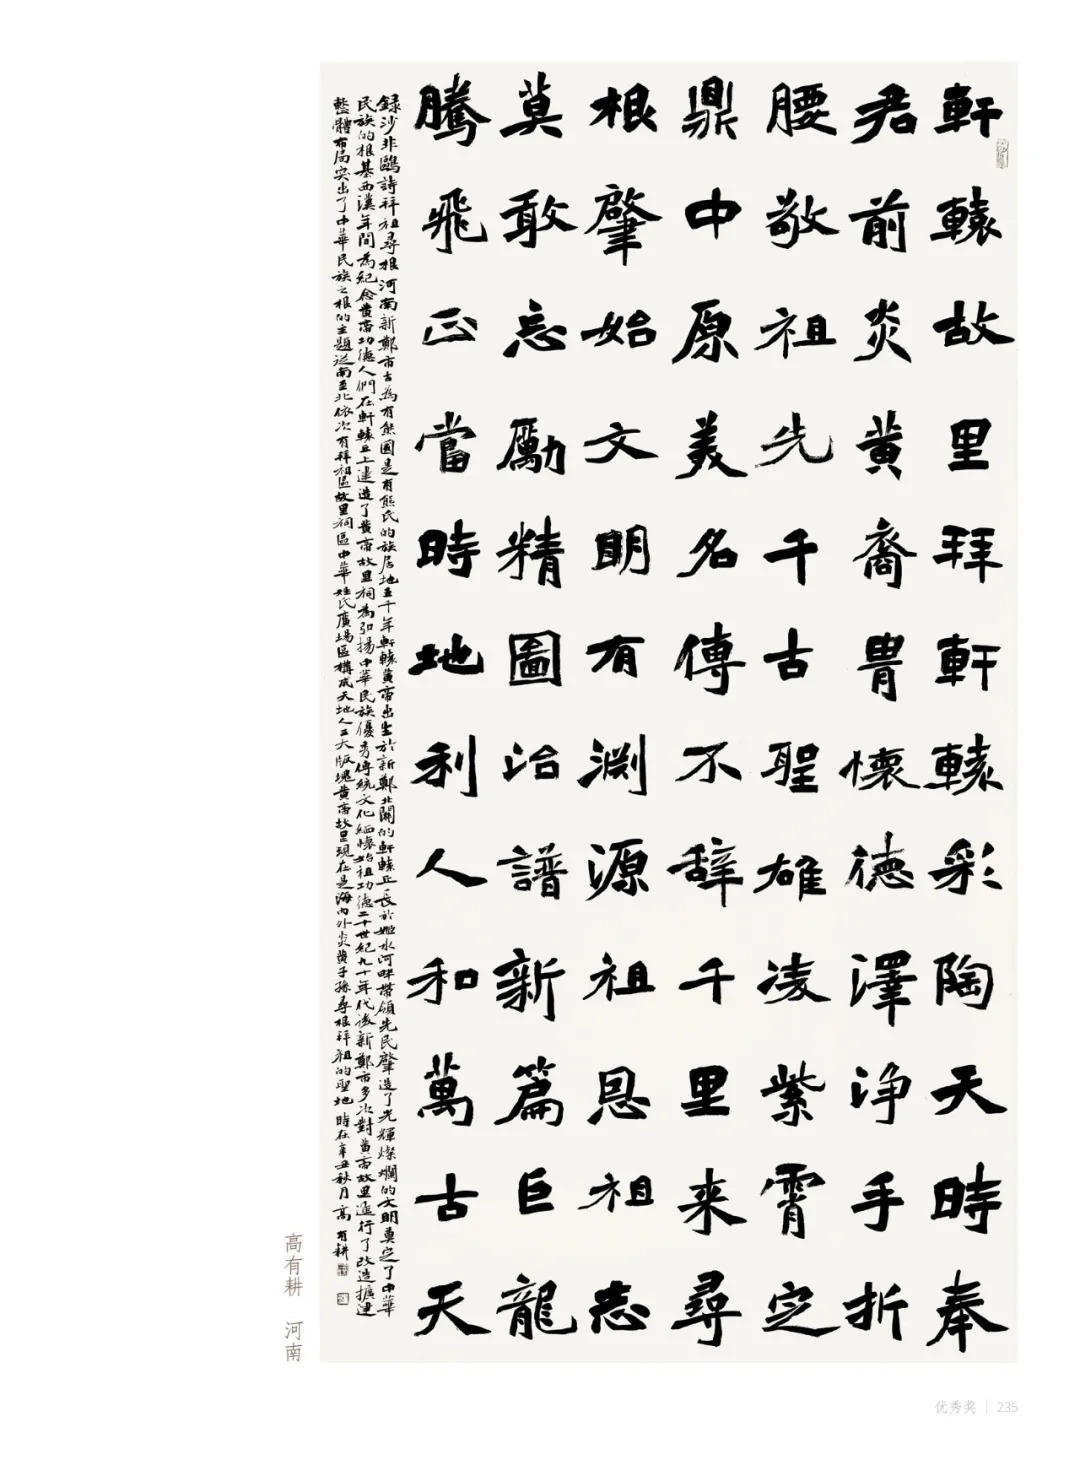 軒轅故里拜軒轅彩陶天時奉
君前炎黄裔胄懷德澤净手折
腰敬祖先千古聖雄凌紫霄定
鼎中原美名傳不辞千里来尋
根肇始文明有淵源祖恩祖志
莫敢忘勵精圖治譜新篇巨龍
騰飛正當時地利人和萬古天
録沙非鷗詩拜祖尋根河南新鄭市古為有熊國是有熊氏的族居地五千年軒轅黄帝出生於新鄭北關的軒轅丘長於姬水河畔帶領先民肇造了光輝燦爛的文明奠定了中華
民族的根基西漢年間為紀念黄帝功德人們在軒轅丘上建造了黄帝故里祠為弘揚中華民族優秀傳統文化緬懷始祖功德二十世紀九十年代後新鄭市多次對黄帝故里進行了改造擴建
整體布局突出了中華民族之根的主題從南至北依次有拜祖區故里祠區中華姓氏廣場區構成天地人三大版塊黄帝故里現在是海内外炎黄子孫尋根拜祖的聖地 時在辛丑秋月 高有耕
高有耕 河南
优秀奖 | 235